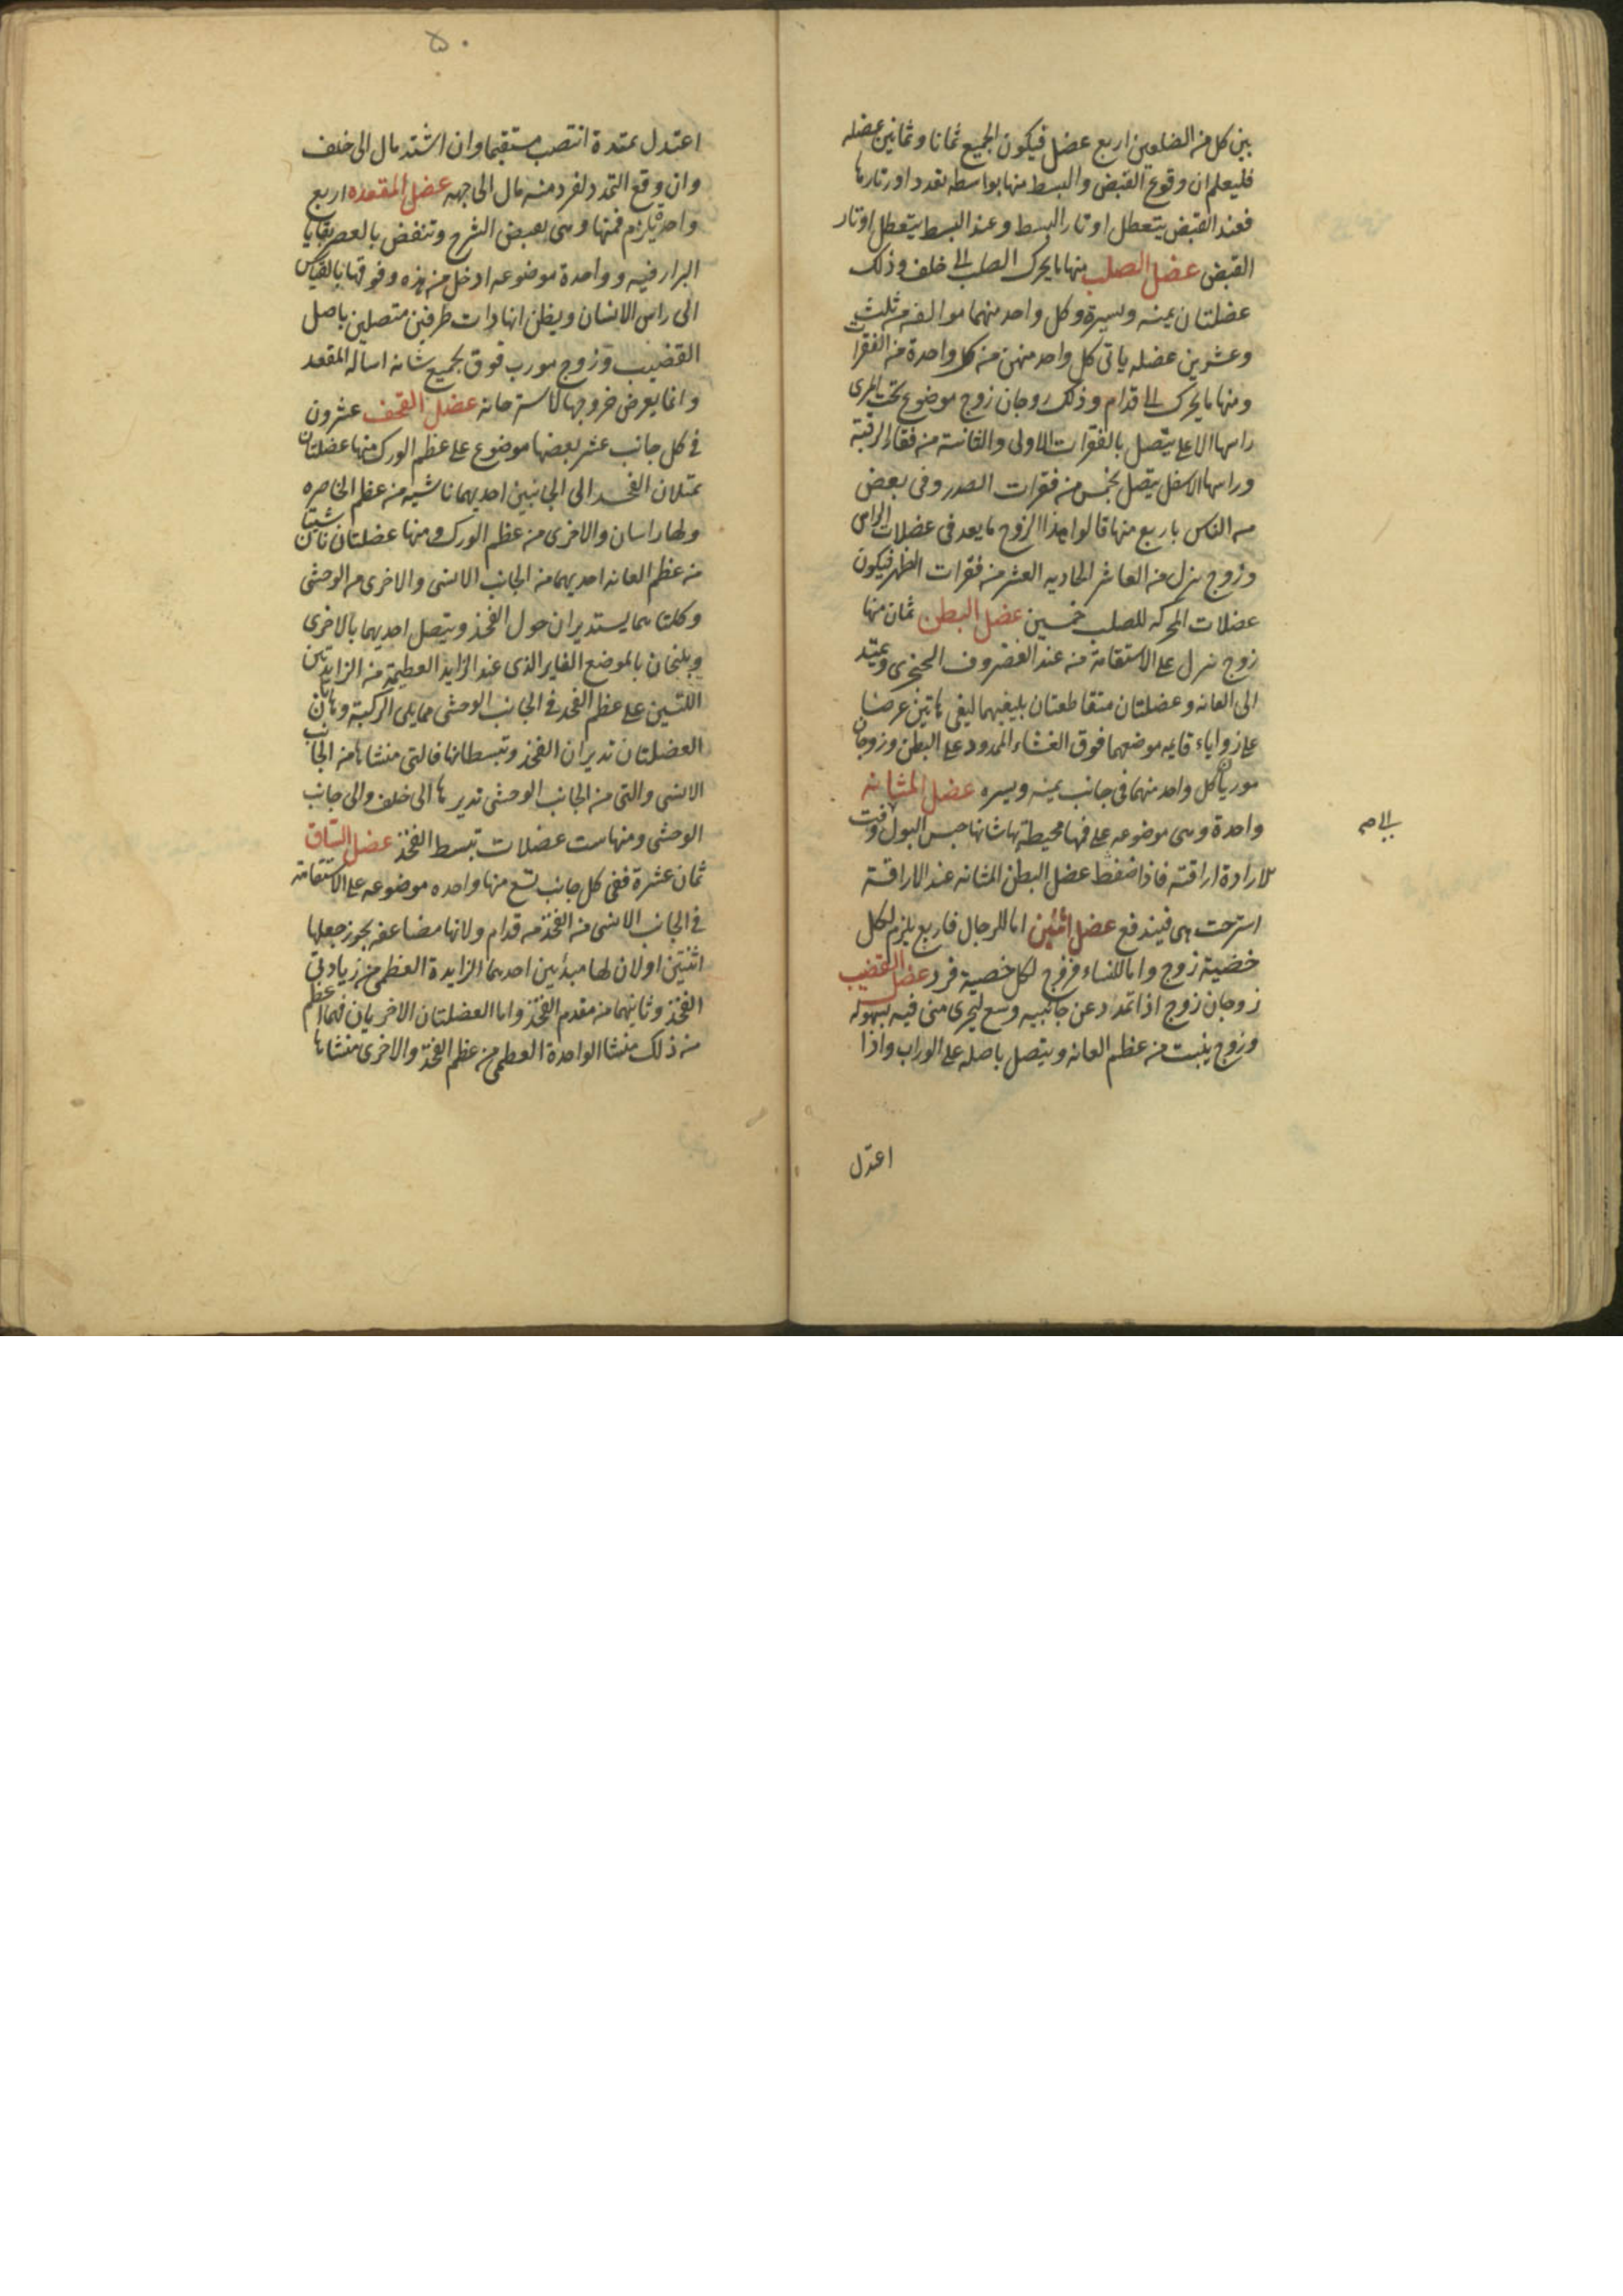 بين كل من الضلعين اربع عضل فيكون الجميع ثمانا وثمانين عضله
فليعلم ان وقوع القبض والبسط منها بواسطه تعدد اوتارها
فعند القبض يتعطل اوتار البسط وعند البسط يتعطل اوتار
القبض عضل الصلب منها ما يحرك الصلب الى خلف وذلك
عضلتان يمنه ويسرة وكل واحد منهما موالفه من ثلث
وعشرين عضله ياتى كل واحد منهن من كل واحدة من الفقرات
ومنها ما يحرك الى قدام وذلك زوجان زوج موضوع تحت المرى
راسها الاعلى يتصل بالفقرات الاولى والثانية من فقار الرقبة
وراسها الاسفل يتصل بخمس من فقرات الصدر وفى بعض
من الناس باربع منها قالوا هذا الزوج ما يعد فى عضلات الراس
وزوج ينزل من العاشر الحاديه العشر من فقرات الظهر فيكون
عضلات المحركه للصلب خمسين عضل البطن ثمان منها
زوج ينزل على الاستقامة منه عند الغضروف الحنجرى ويمتد
الى العانه وعضلتان متقاطعتان بليفيهما ليفى هاتين عرضا
على زواياء قايمه موضعهما فوق الغشاء الممدود على البطن وزوجان
موربان كل واحد منهما فى جانب يمينه ويسره عضل المثانه
واحدة وهى موضوعه على فمها محيطة بها شانها حبس البول وقت
للارادة اراقته فاذا ضغط عضل البطن المثانه عند الاراقة
استرخت هى فيندفع عضل انثيين اما للرجال فاربع يلزم لكل
خصية زوج واما للنساء فزوج لكل خصية فرد عضل القضيب
زوجان زوج اذا تمدد عن جانبيه وسع ليجرى منى فيه بسهوله
وزوج ينبت من عظم العانه ويتصل باصله على الوراب واذا
اعتدل
اعتدل تمدده انتصب مستقيما وان اشتد مال الى خلف
وان وقع التمدد لفرد منه مال الى جهه عضل المقعده اربع
واحدة يلزم فمها وهى بعبض الشرج وتنفض بالعصر بقايا
البراز فيه وواحدة موضوعه ادخل من هذه وفوقها بالقياس
الى راس الانسان ويظن انها ذات طرفين متصلين باصل
القضيب وزوج مورب فوق لجميع شانه اساله المقعد
وانما يعرض خروجها لاسترخائه عضل القحف عشرون
فى كل جانب عشر بعضها موضوع على عظم الورك منها عضلتان
تمتلان الفخد الى الجانبين احديهما ناشيه من عظم الخاصره
ولها راسان والاخرى من عظم الورك ومنها عضلتان ناشيتان
من عظم العانه احديهما من الجانب الانسى والاخرى من الوحشى
وكلتاهما يستديران حول الفخذ ويتصل احديهما بالاخرى
ويلتحمان بالموضع الغاير الذى عند الزايد العظيمة من الزايدتين
اللتين على عظم الفخذ فى الجانب الوحشى مما يلى الركبة وهاتان
العضلتان تديران الفخذ وتبسطانها فالتى منشاها من الجانب
الانسى والتى من الجانب الوحشى تديرها الى خلف والى جانب
الوحشى ومنها ست عضلات تبسط الفخذ عضل الساق
ثمان عشرة ففى كل جانب تسع منها واحده موضوعه على الاستقامة
فى الجانب الانسى من الفخذ من قدام ولانها مضاعفه يجوز جعلها
اثنتين اولان لها مبدئين احدهما الزايدة العظمى من زيادتى
الفخذ وثانيهما من مقدم الفخذ واما العضلتان الاخريان فهما اعظم
من ذلك منشا الواحدة العظمى من عظم الفخذ والاخرى منشاها